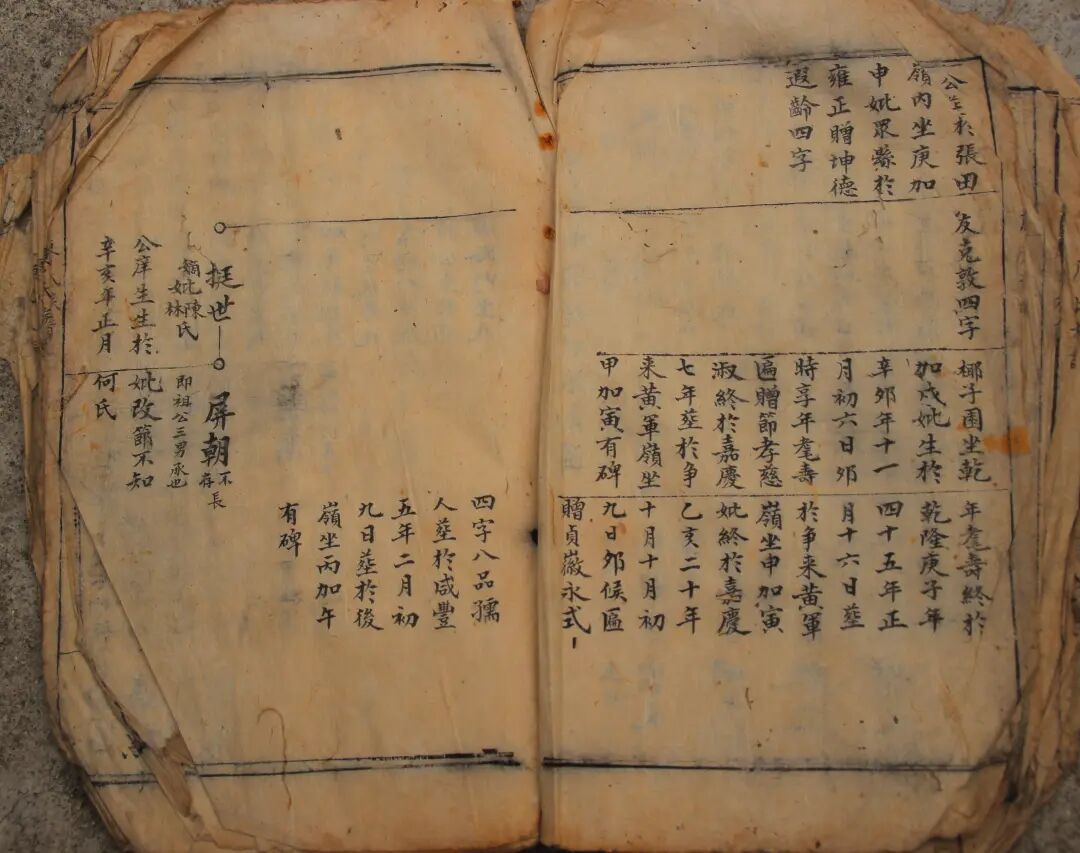 公塟於張田
嶺內坐庚加
申妣眾縣於
雍正贈坤德
遐齡四字
友克敦四字
椰子園坐乾
加戌妣生於
辛夘年十一
月初六日夘
時享年耄壽
匾贈節孝慈
淑終於嘉慶
七年塟於爭
来黄軍嶺坐
甲加寅有碑
年耄壽終於
乾隆庚子年
四十五年正
月十六日塟
於爭来黄軍
嶺坐申加寅
妣終於嘉慶
乙亥二十年
十月十月初
九日夘候匾
贈貞徽永式
四字八品孺
人塟於咸豐
五年二月初
九日塟於後
嶺坐丙加午
有碑
挺世
嫡妣陳氏
林
公庠生生於
辛亥年正月
屏朝
不存
長
即祖公三男承也
妣改篩不知
何氏